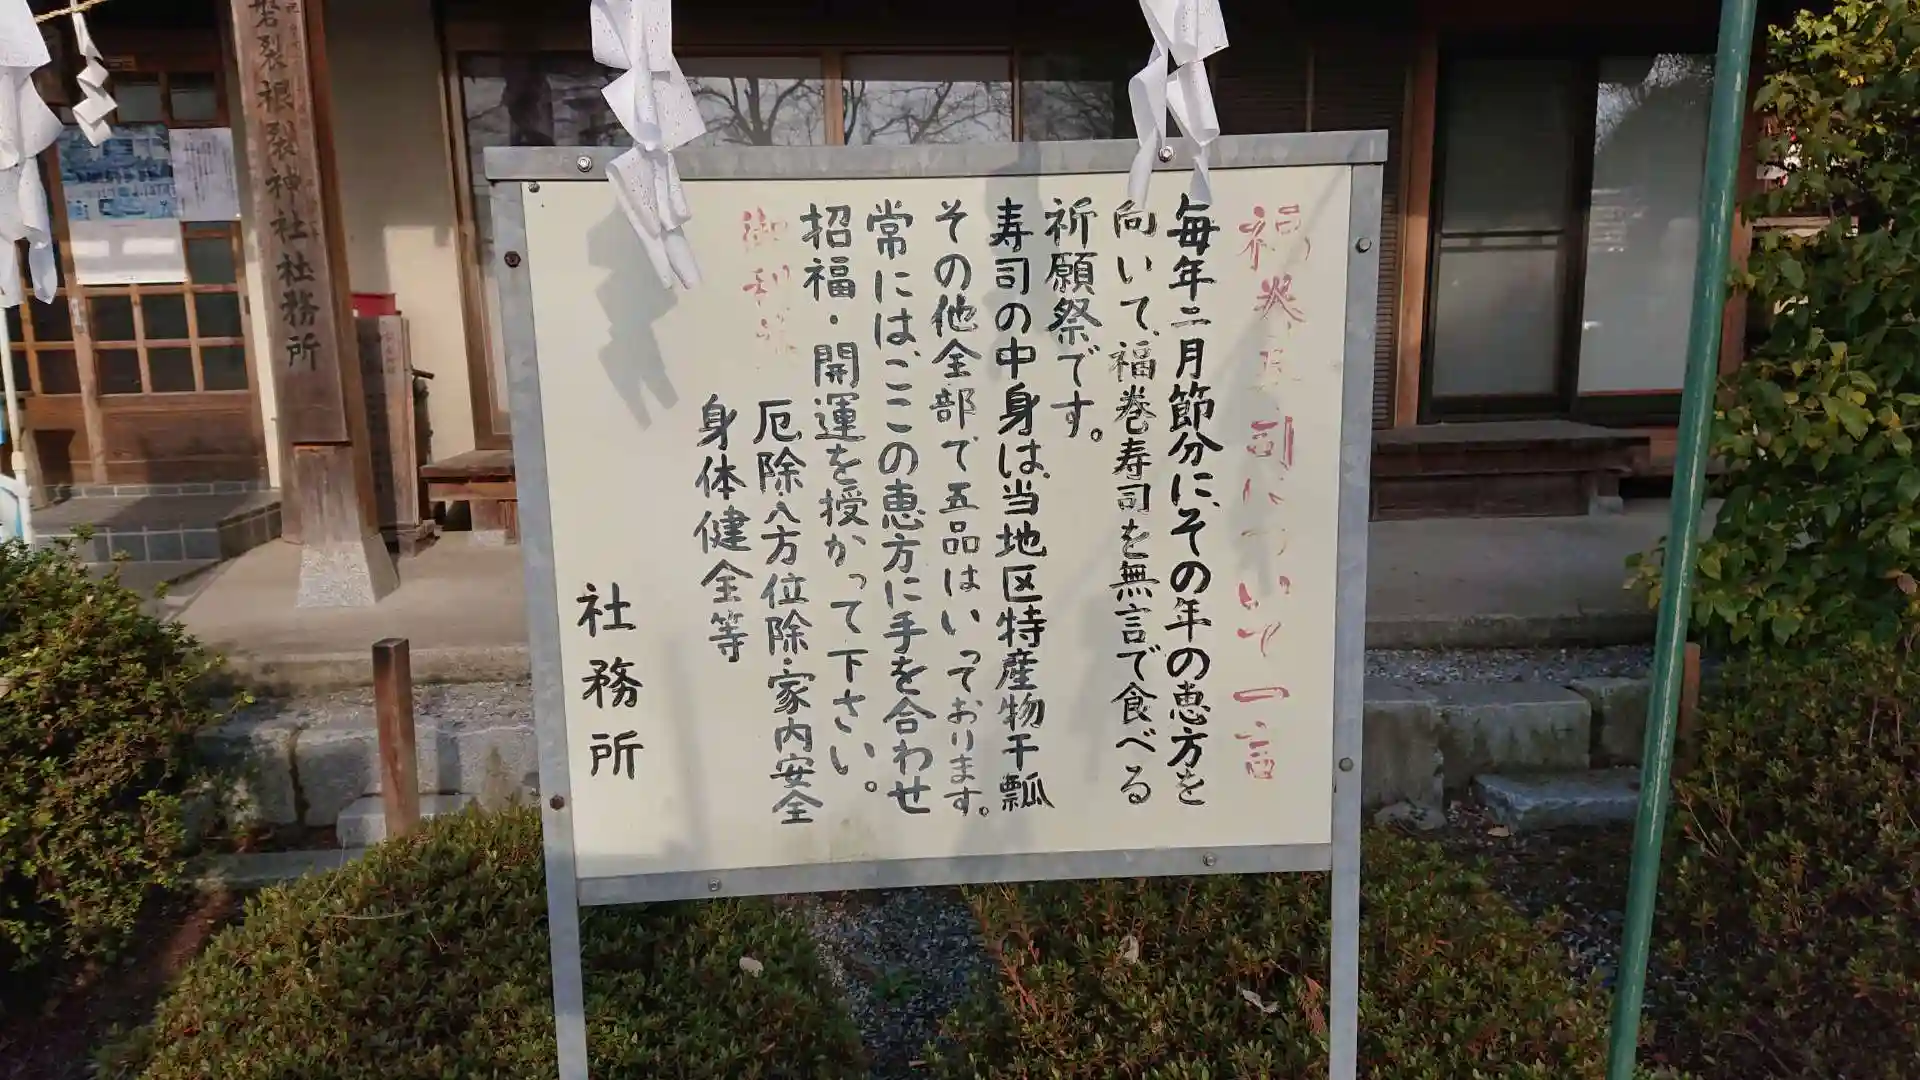 福巻寿司について一言
毎年二月節分に、その年の恵方を
向いて、福巻寿司を無言で食べる
祈願祭です。
寿司の中身は、当地区特産物干瓢
その他全部で五品はいっております。
常には、ここの恵方に手を合わせ
招福・開運を授かって下さい。
御利益
厄除・八方位除・家内安全
身体健全等
社務所
磐裂根裂神社社務所